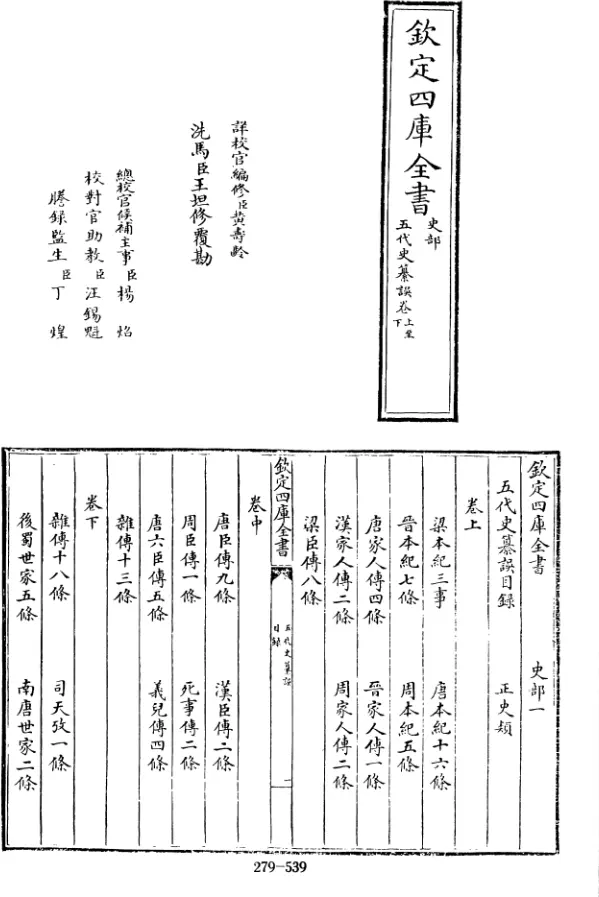 欽定四庫全書
史部
五代史纂誤卷上至下
詳校官編修臣黃壽齡
洗馬臣王坦修覆勘
總校官候補主事臣楊焰
校對官助教臣汪錫魁
謄錄監生臣丁煌
欽定四庫全書 史部一
五代史纂誤目錄 正史類
卷上
梁本紀三事 唐本紀十六條
晉本紀七條 周本紀五條
唐家人傳四條 晉家人傳一條
漢家人傳二條 周家人傳二條
梁臣傳八條
欽定四庫全書
五代史纂誤
目錄
一
卷中
唐臣傳九條 漢臣傳二條
周臣傳一條 死事傳二條
唐六臣傳五條 義兒傳四條
雜傳十三條
卷下
雜傳十八條 司天攷一條
後蜀世家五條 南唐世家二條
279-539